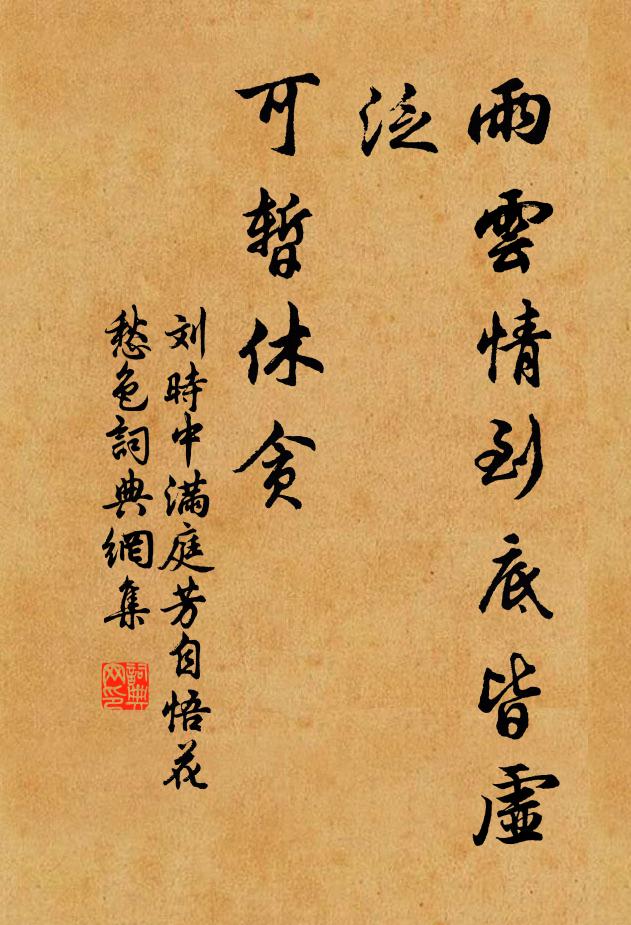 雨雲情到底皆虛
泛
可暫休貪
刘時中滿庭芳自悟花
愁色詞典網集
詞典网印